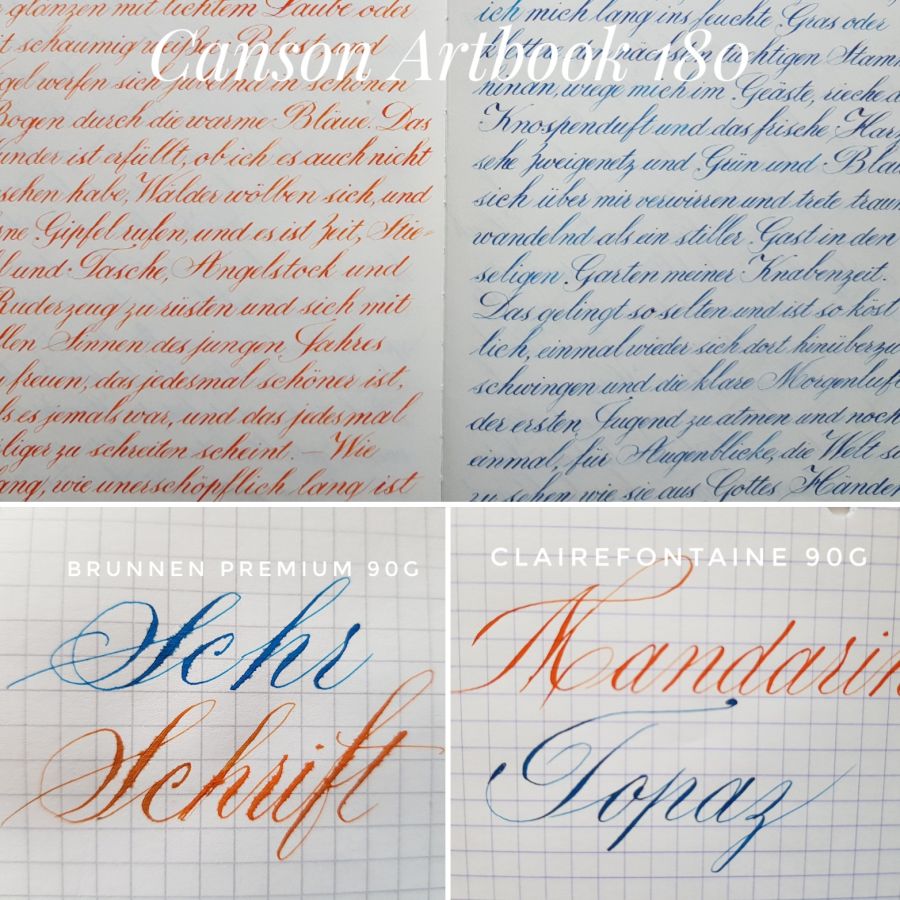 Canson Artbook 180
glänzen mit lichtem Laube oder
t schaumig weißer Blust und
gel werfen sich jubelnd in schönen
Bogen durch die warme Bläue. Das
under ist erfüllt, ob ich es auch nicht
sehen habe, Wälder wölben sich, und
ne Gipfel rufen, und es ist Zeit, Stie=
l und Tasche, Angelstock und
Ruderzeug zu rüsten und sich mit
llen Sinnen des jungen Jahres
u freuen, das jedesmal schöner ist,
ls es jemals war, und das jedesmal
iliger zu schreiten scheint. – Wie
ang, wie unerschöpflich lang ist
ich mich lang ins feuchte Gras oder
den nächsten tüchtigen Stamm
hinan, wiege mich im Geäste, rieche d
Knospenduft und das frische Harz
sehe Zweigenetz und Grün und Blau
sich über mir verwirren und trete traum
wandelnd als ein stiller Gast in den
seligen Garten meiner Knabenzeit.
Das gelingt so selten und ist so köst
lich, einmal wieder sich dort hinüberzu
schwingen und die klare Morgenluft
der ersten Jugend zu atmen und noch
einmal, für Augenblicke, die Welt so
zu sehen wie sie aus Gottes Händen
BRUNNEN PREMIUM 90G
Schr
Schrift
CLAIREFONTAINE 90G
Mandarin
Topaz